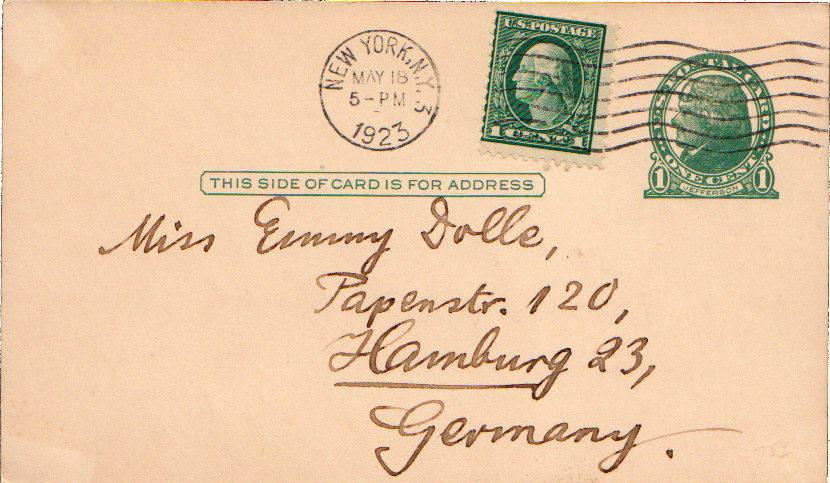 NEW YORK, N.Y. 3
MAY 18
5-PM
1923
U.S. POSTAGE
1 CENT 1
U.S. POSTAL CARD
ONE CENT
1 JEFFERSON 1
THIS SIDE OF CARD IS FOR ADDRESS
Miss Emmy Dolle,
Papenstr. 120,
Hamburg 23,
Germany.